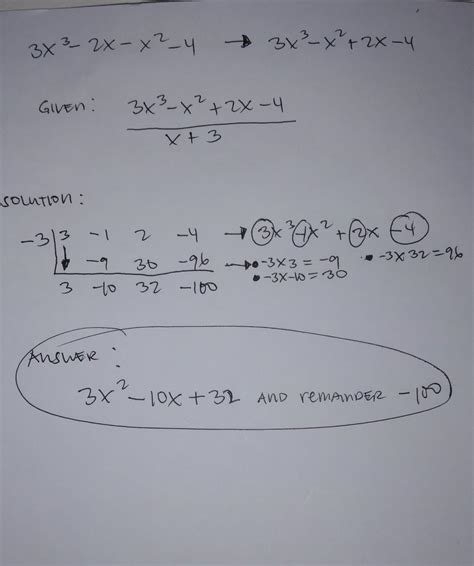 3x³ - 2x - x² - 4 → 3x³ - x² + 2x - 4
GIVEN: 3x³ - x² + 2x - 4
x + 3
SOLUTION:
-3 | 3 -1 2 -4 → 3x³ -1x² + 2x -4
-9 30 -96 → • -3 x 3 = -9 • -3 x 32 = 96
• -3 x -10 = 30
3 -10 32 -100
ANSWER:
3x² - 10x + 32 AND remAINDER -100